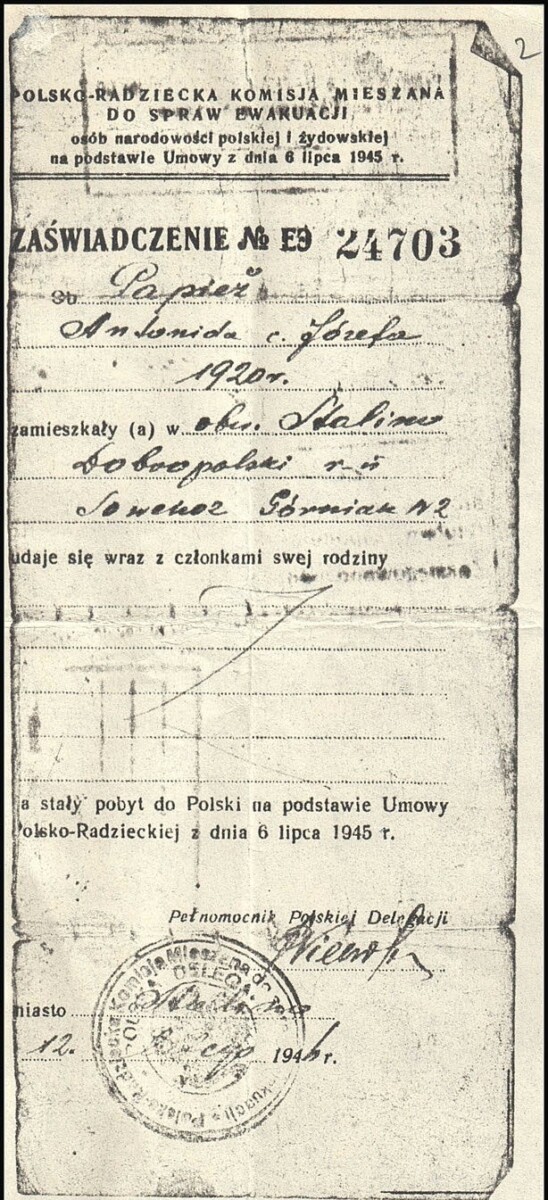 2
POLSKO-RADZIECKA KOMISJA MIESZANA
DO SPRAW EWAKUACJI
osób narodowości polskiej i żydowskiej
na podstawie Umowy z dnia 6 lipca 1945 r.
ZAŚWIADCZENIE № EЭ 24703
Ob. Papież
Antonida c. Józefa
1920 r.
zamieszkały (a) w obw. Stalino
Dobropolski r-n
Sowchoz Górniak N2
udaje się wraz z członkami swej rodziny
na stały pobyt do Polski na podstawie Umowy
Polsko-Radzieckiej z dnia 6 lipca 1945 r.
Pełnomocnik Polskiej Delegacji
miasto
12. 1946 r.
Polsko-Radziecka Komisja Mieszana do